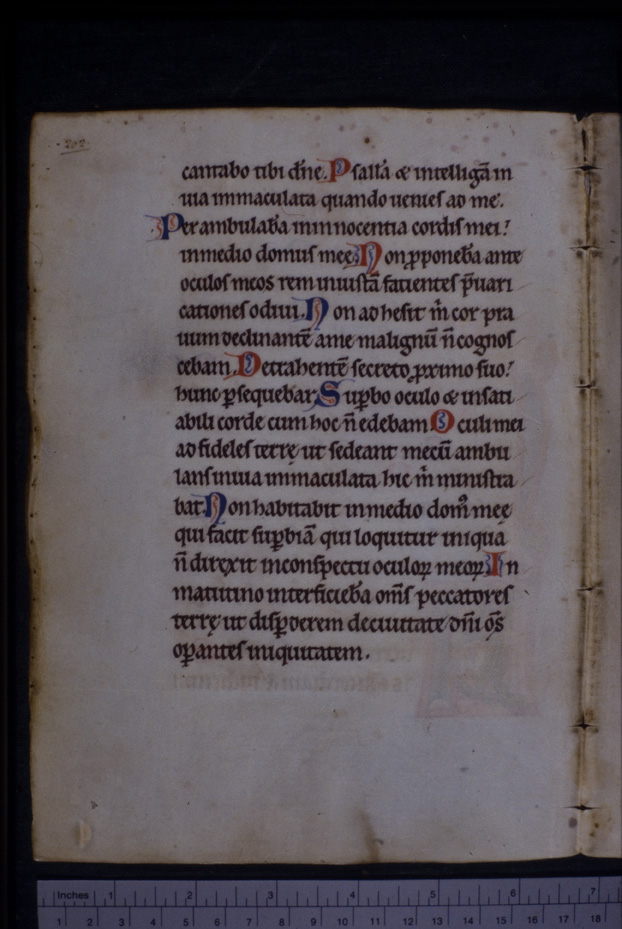 202
cantabo tibi dñe. Psallã & intelligã in
uia immaculata quando uenies ad me.
Perambulaba in innocentia cordis mei:
inmedio domus meę. Non ꝓponeba ante
oculos meos rem iniustã facientes p̃uari
cationes odiui. Non adhesit m̃ cor pra
uum declinantẽ ame malignũ ñ cognos
cebam. Detrahentẽ secreto ꝓximo suo:
hunc ꝑsequebar. Suꝑbo oculo & insati
abili corde cum hoc ñ edebam. Oculi mei
ad fideles terrę ut sedeant mecũ ambu
lans inuia immaculata hic m̃ ministra
bat. Non habitabit inmedio dom᷒ meę
qui facit suꝑbiã qui loquitur iniqua
ñ direxit inconspectu oculoꝝ meoꝝ. In
matutino interficieba om̃s peccatores
terrę ut disꝑderem deciuitate dñi om̃s
oꝑantes iniquitatem.
Inches 1 2 3 4 5 6 7
1 2 3 4 5 6 7 8 9 10 11 12 13 14 15 16 17 18